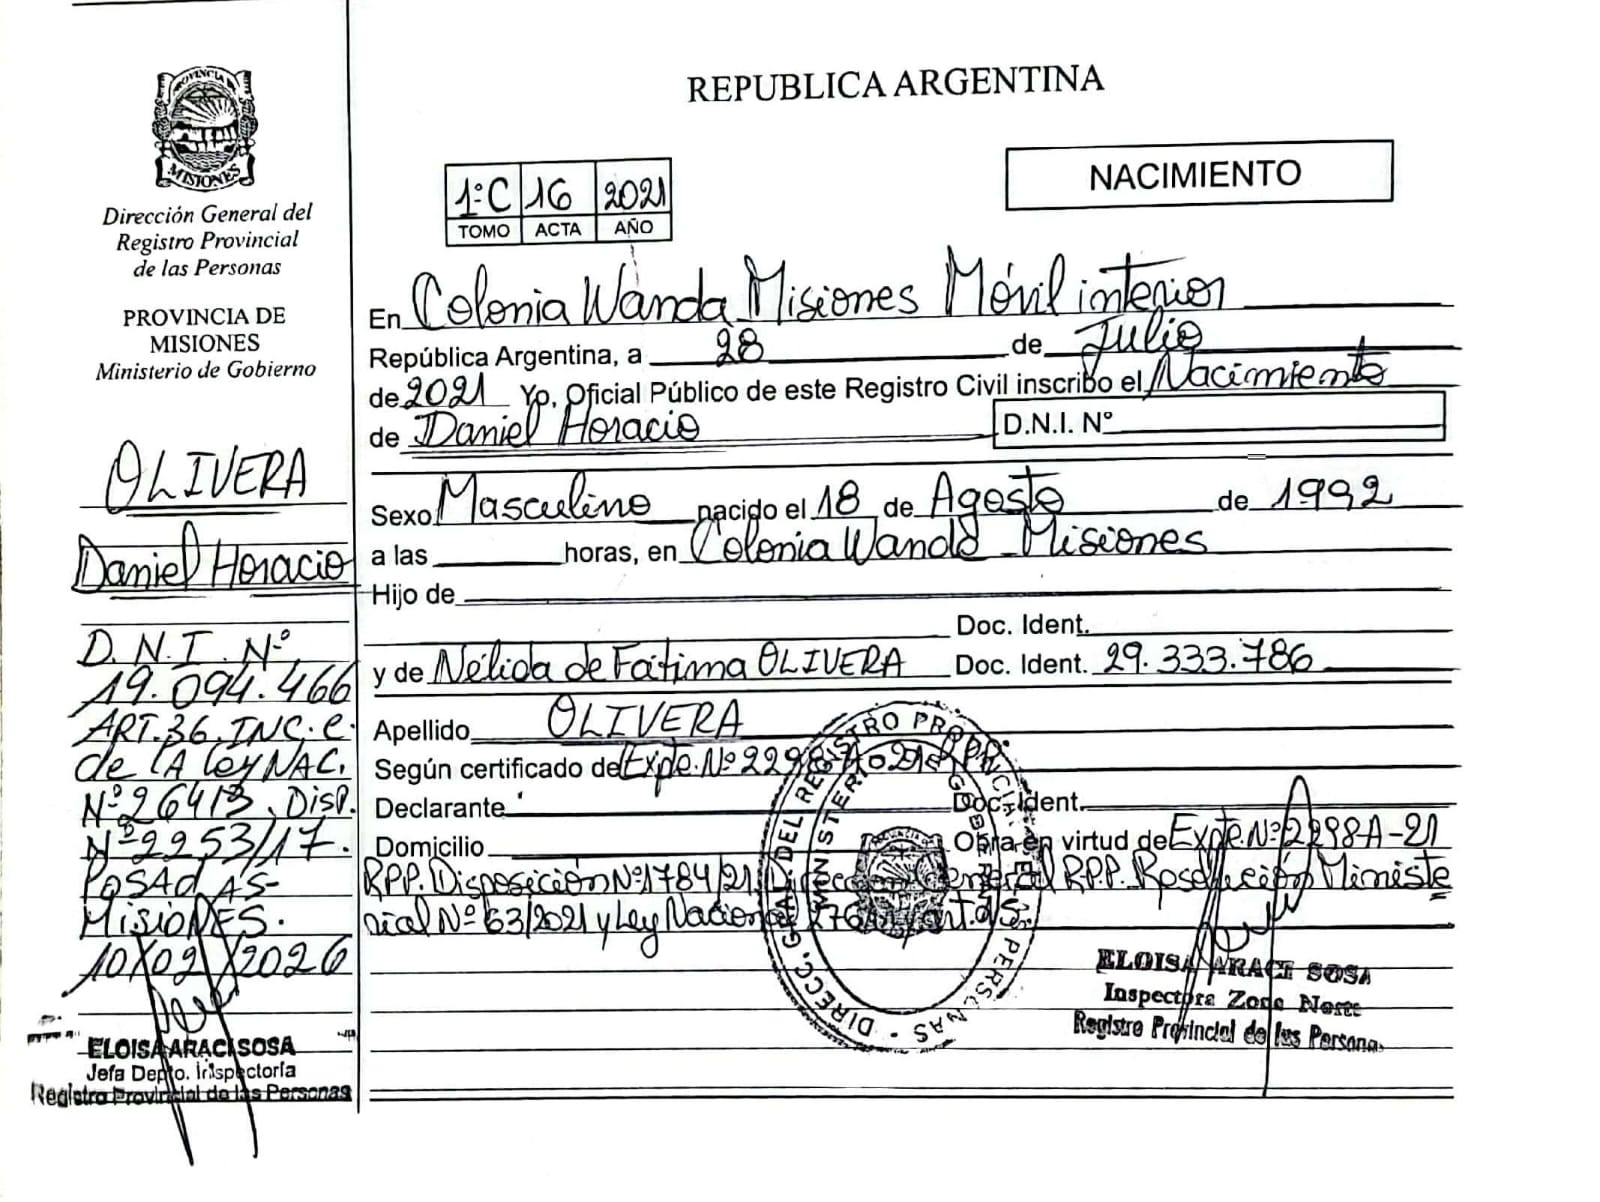 PROVINCIA DE
MISIONES
Dirección General del
Registro Provincial
de las Personas
PROVINCIA DE
MISIONES
Ministerio de Gobierno
OLIVERA
Daniel Horacio
D.N.I. Nº
19.094.466
ART.36.INC.c.
de lA ley NAC.
Nº 26413, Disp.
Nº 2253/17.
PosAdAS-
MisioNES.
10/02/2026
ELOISA ARACI SOSA
Jefa Depto. Inspectoría
Registro Provincial de las Personas
REPUBLICA ARGENTINA
NACIMIENTO
1:C 16 2021
TOMO ACTA AÑO
En Colonia Wanda Misiones Móvil interior
República Argentina, a 28 de Julio
de 2021 Yo, Oficial Público de este Registro Civil inscribo el Nacimiento
de Daniel Horacio D.N.I. Nº
Sexo Masculino nacido el 18 de Agosto de 1992
a las horas, en Colonia Wanda Misiones
Hijo de
Doc. Ident.
y de Nélida de Fátima OLIVERA Doc. Ident. 29.333.786
Apellido OLIVERA
Según certificado de Expte. Nº 2298 A 021 RPP.
Declarante Doc. Ident.
Domicilio Obra en virtud de Expte. Nº 2298A-21
RPP. Disposición Nº 1784/21 Dirección General R.P.P. Resolución Ministe
rial Nº 63/2021 y Ley Nacional art.
DIRECC. GRAL. DEL REGISTRO PROVINCIAL DE LAS PERSONAS
MINISTERIO DE GOBIERNO
ELOISA ARACI SOSA
Inspectora Zona Norte
Registro Provincial de las Persona.